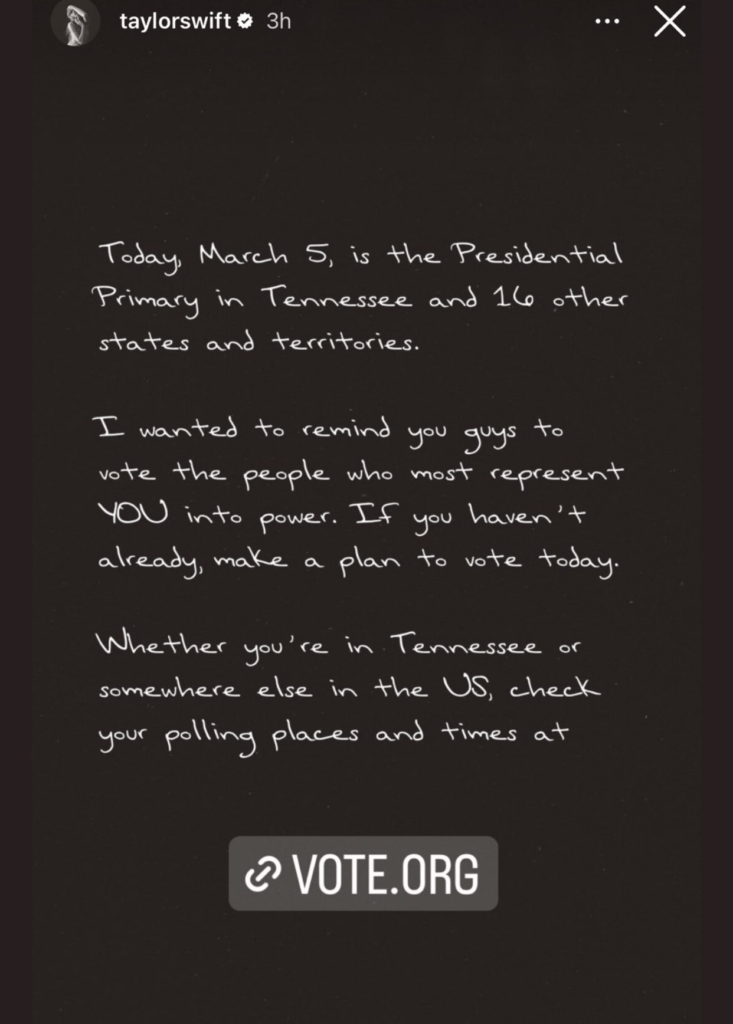 taylorswift 3h
Today, March 5, is the Presidential
Primary in Tennessee and 16 other
states and territories.
I wanted to remind you guys to
vote the people who most represent
YOU into power. If you haven't
already, make a plan to vote today.
Whether you're in Tennessee or
somewhere else in the US, check
your polling places and times at
VOTE.ORG